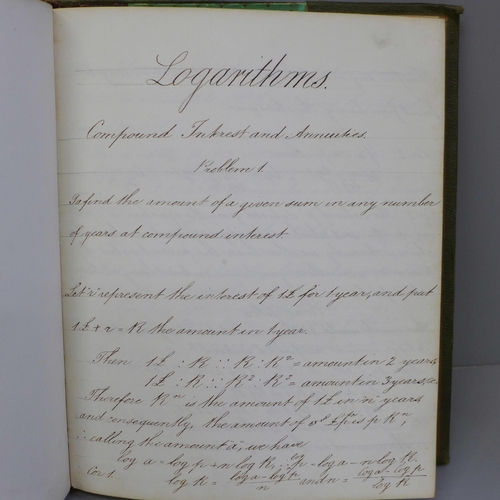 Logarithms.
Compound Intrest and Annuities.
Problem 1.
To find the amount of a given sum in any number
of years at compound interest.
Let "r" represent the interest of 1£ for 1 year, and put
1£ + r = R the amount in 1 year.
Then 1£ : R :: R : R² = amount in 2 years
1£ : R :: R² : R³ = amount in 3 years, &c.
Therefore Rⁿ is the amount of 1£ in n years
and consequently, the amount of £p is p Rⁿ,
∴ calling the amount a, we have
log a = log p + n log R, ; log p = log a - n log R.
Cor 1 log R = (log a - log p)/n and n = (log a - log p)/log R